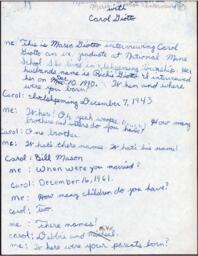 with
Carol Giotto
me: This is Marso Giotto interviewing Carol
Giotto an 6th graduate at National Mine
School. She lives in Ishpeming Township. Her
husbands name is Giotto. I interviewed
her on 10, 1990. When and where
were you born?
Carol: Ishpeming December 7, 1943.
me: When! Oh yeah wrote How many
brothers and sisters do you have?
Carol: One brother.
me: What's there names? What's his name?
Carol: Bill Mason
me: When were you married?
Carol: December 16, 1961.
me: How many children do you have?
Carol: Two.
me: There names?
Carol: Debbie and
me: Where were your parents born?